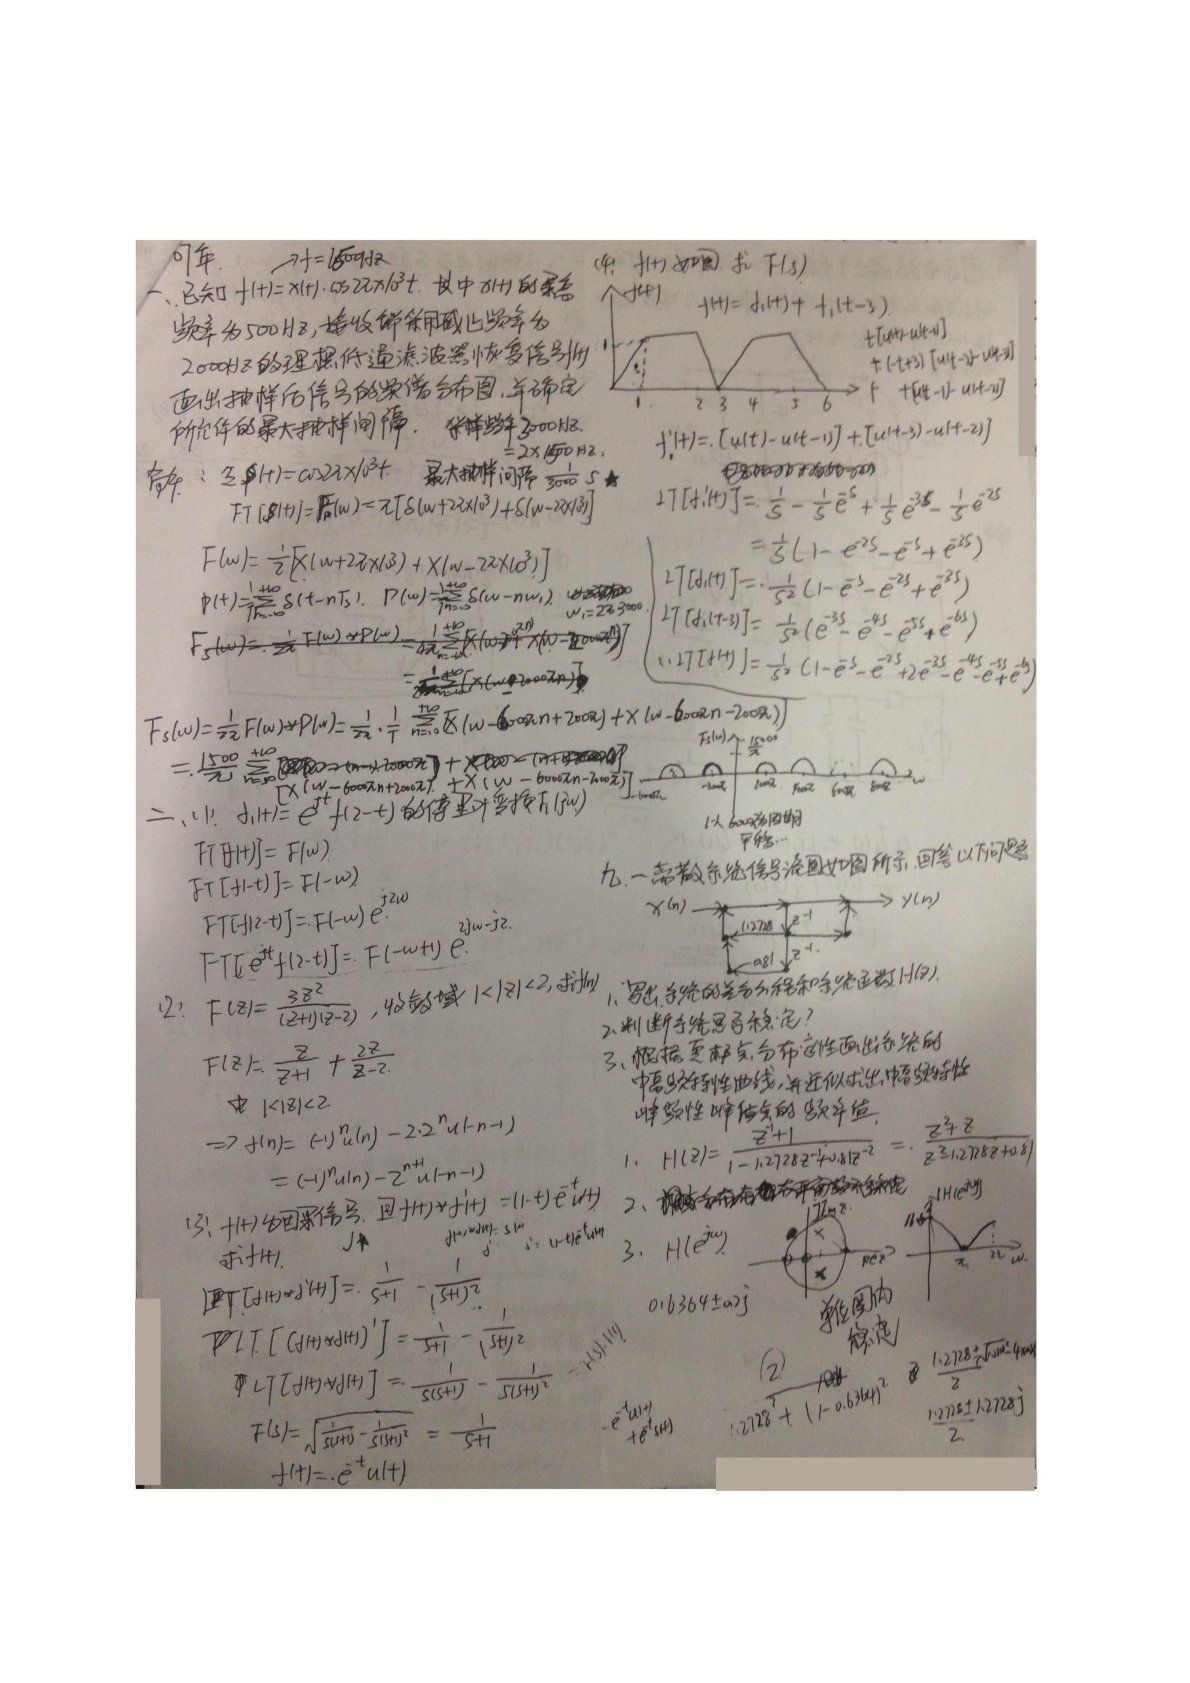 07年. →f=1500Hz
一、已知 f(t)=x(t)·cos2π×10³t. 其中 x(t) 的最高
频率为500Hz,接收端采用截止频率为
2000Hz的理想低通滤波器恢复信号f(t)
画出抽样后信号的频谱分布图,并确定
所允许的最大抽样间隔. 采样频率3000Hz.
=2×1500Hz.
cos2π×10³t. 最大抽样间隔 1/3000 s ★
=π[δ(w+2π×10³)+δ(w-2π×10³)]
F(w)=1/2[X(w+2π×10³)+X(w-2π×10³)]
δ(t-nTs). P(w)= δ(w-nw₁).
w₁=2π·3000.
Fs(w)=1/2π F(w)*P(w)=1/2π·1/T Σ[X(w-6000πn+2000π)+X(w-6000πn-2000π)]
=1500/π Σ
[X(w-6000πn+2000π) +X(w-6000πn-2000π)]
二、(1). f₁(t)=e^{jt}f(2-t)的傅里叶变换F₁(jw)
FT[f(t)]=F(w)
FT[f(-t)]=F(-w)
FT[f(2-t)]=F(-w)e^{j2w}
FT[e^{jt}f(2-t)]=F(-w+1)e^{2jw-j2}
(2). F(z)=3z²/((z+1)(z-2)),收敛域 1<|z|<2,求f(n)
F(z)=z/(z+1)+2z/(z-2)
由 1<|z|<2
=> f(n)=(-1)ⁿu(n)-2·2ⁿu(-n-1)
=(-1)ⁿu(n)-2^{n+1}u(-n-1)
(3). f(t)为因果信号,且f(t)*f'(t)=(1-t)e^{-t}u(t)
求f(t).
LT[f(t)*f'(t)]=1/(s+1)-1/(s+1)²
LT[(f(t)*f(t))']=1/(s+1)-1/(s+1)²
LT[f(t)*f(t)]=1/(s(s+1))-1/(s(s+1)²)
F(s)=√(1/(s(s+1))-1/(s(s+1)²))=1/(s+1)
f(t)=e^{-t}u(t)
(4). f(t)如图 求F(s)
f(t)
f(t)=f₁(t)+f₁(t-3)
1
1 2 3 4 5 6 t
f₁'(t)=[u(t)-u(t-1)]+[u(t-3)-u(t-2)]
LT[f₁'(t)]=1/s-1/s e^{-s}+1/s e^{-3s}-1/s e^{-2s}
=1/s(1-e^{-2s}-e^{-s}+e^{-3s})
LT[f₁(t)]=1/s²(1-e^{-s}-e^{-2s}+e^{-3s})
LT[f₁(t-3)]=1/s²(e^{-3s}-e^{-4s}-e^{-5s}+e^{-6s})
∴LT[f(t)]=1/s²(1-e^{-s}-e^{-2s}+2e^{-3s}-e^{-4s}-e^{-5s}+e^{-6s})
Fs(w)
w
以6000π为周期
平移…
九、一离散系统信号流图如图所示,回答以下问题
X(n) Y(n)
1.2728 z⁻¹
0.81 z⁻¹
1、写出系统的差分方程和系统函数H(z).
2、判断系统是否稳定?
3、根据零极点分布定性画出系统的
幅频特性曲线,并近似求出幅频特性
峰值点的频率值.
1. H(z)=(z⁻¹+1)/(1-1.2728z⁻¹+0.81z⁻²)=(z²+z)/(z²-1.2728z+0.81)
2、
Imz
Rez
3. H(e^{jw})
|H(e^{jw})|
π 2π w
单位圆内
稳定
1.2728²+(1-0.6364)²
(1.2728±1.2728j)/2